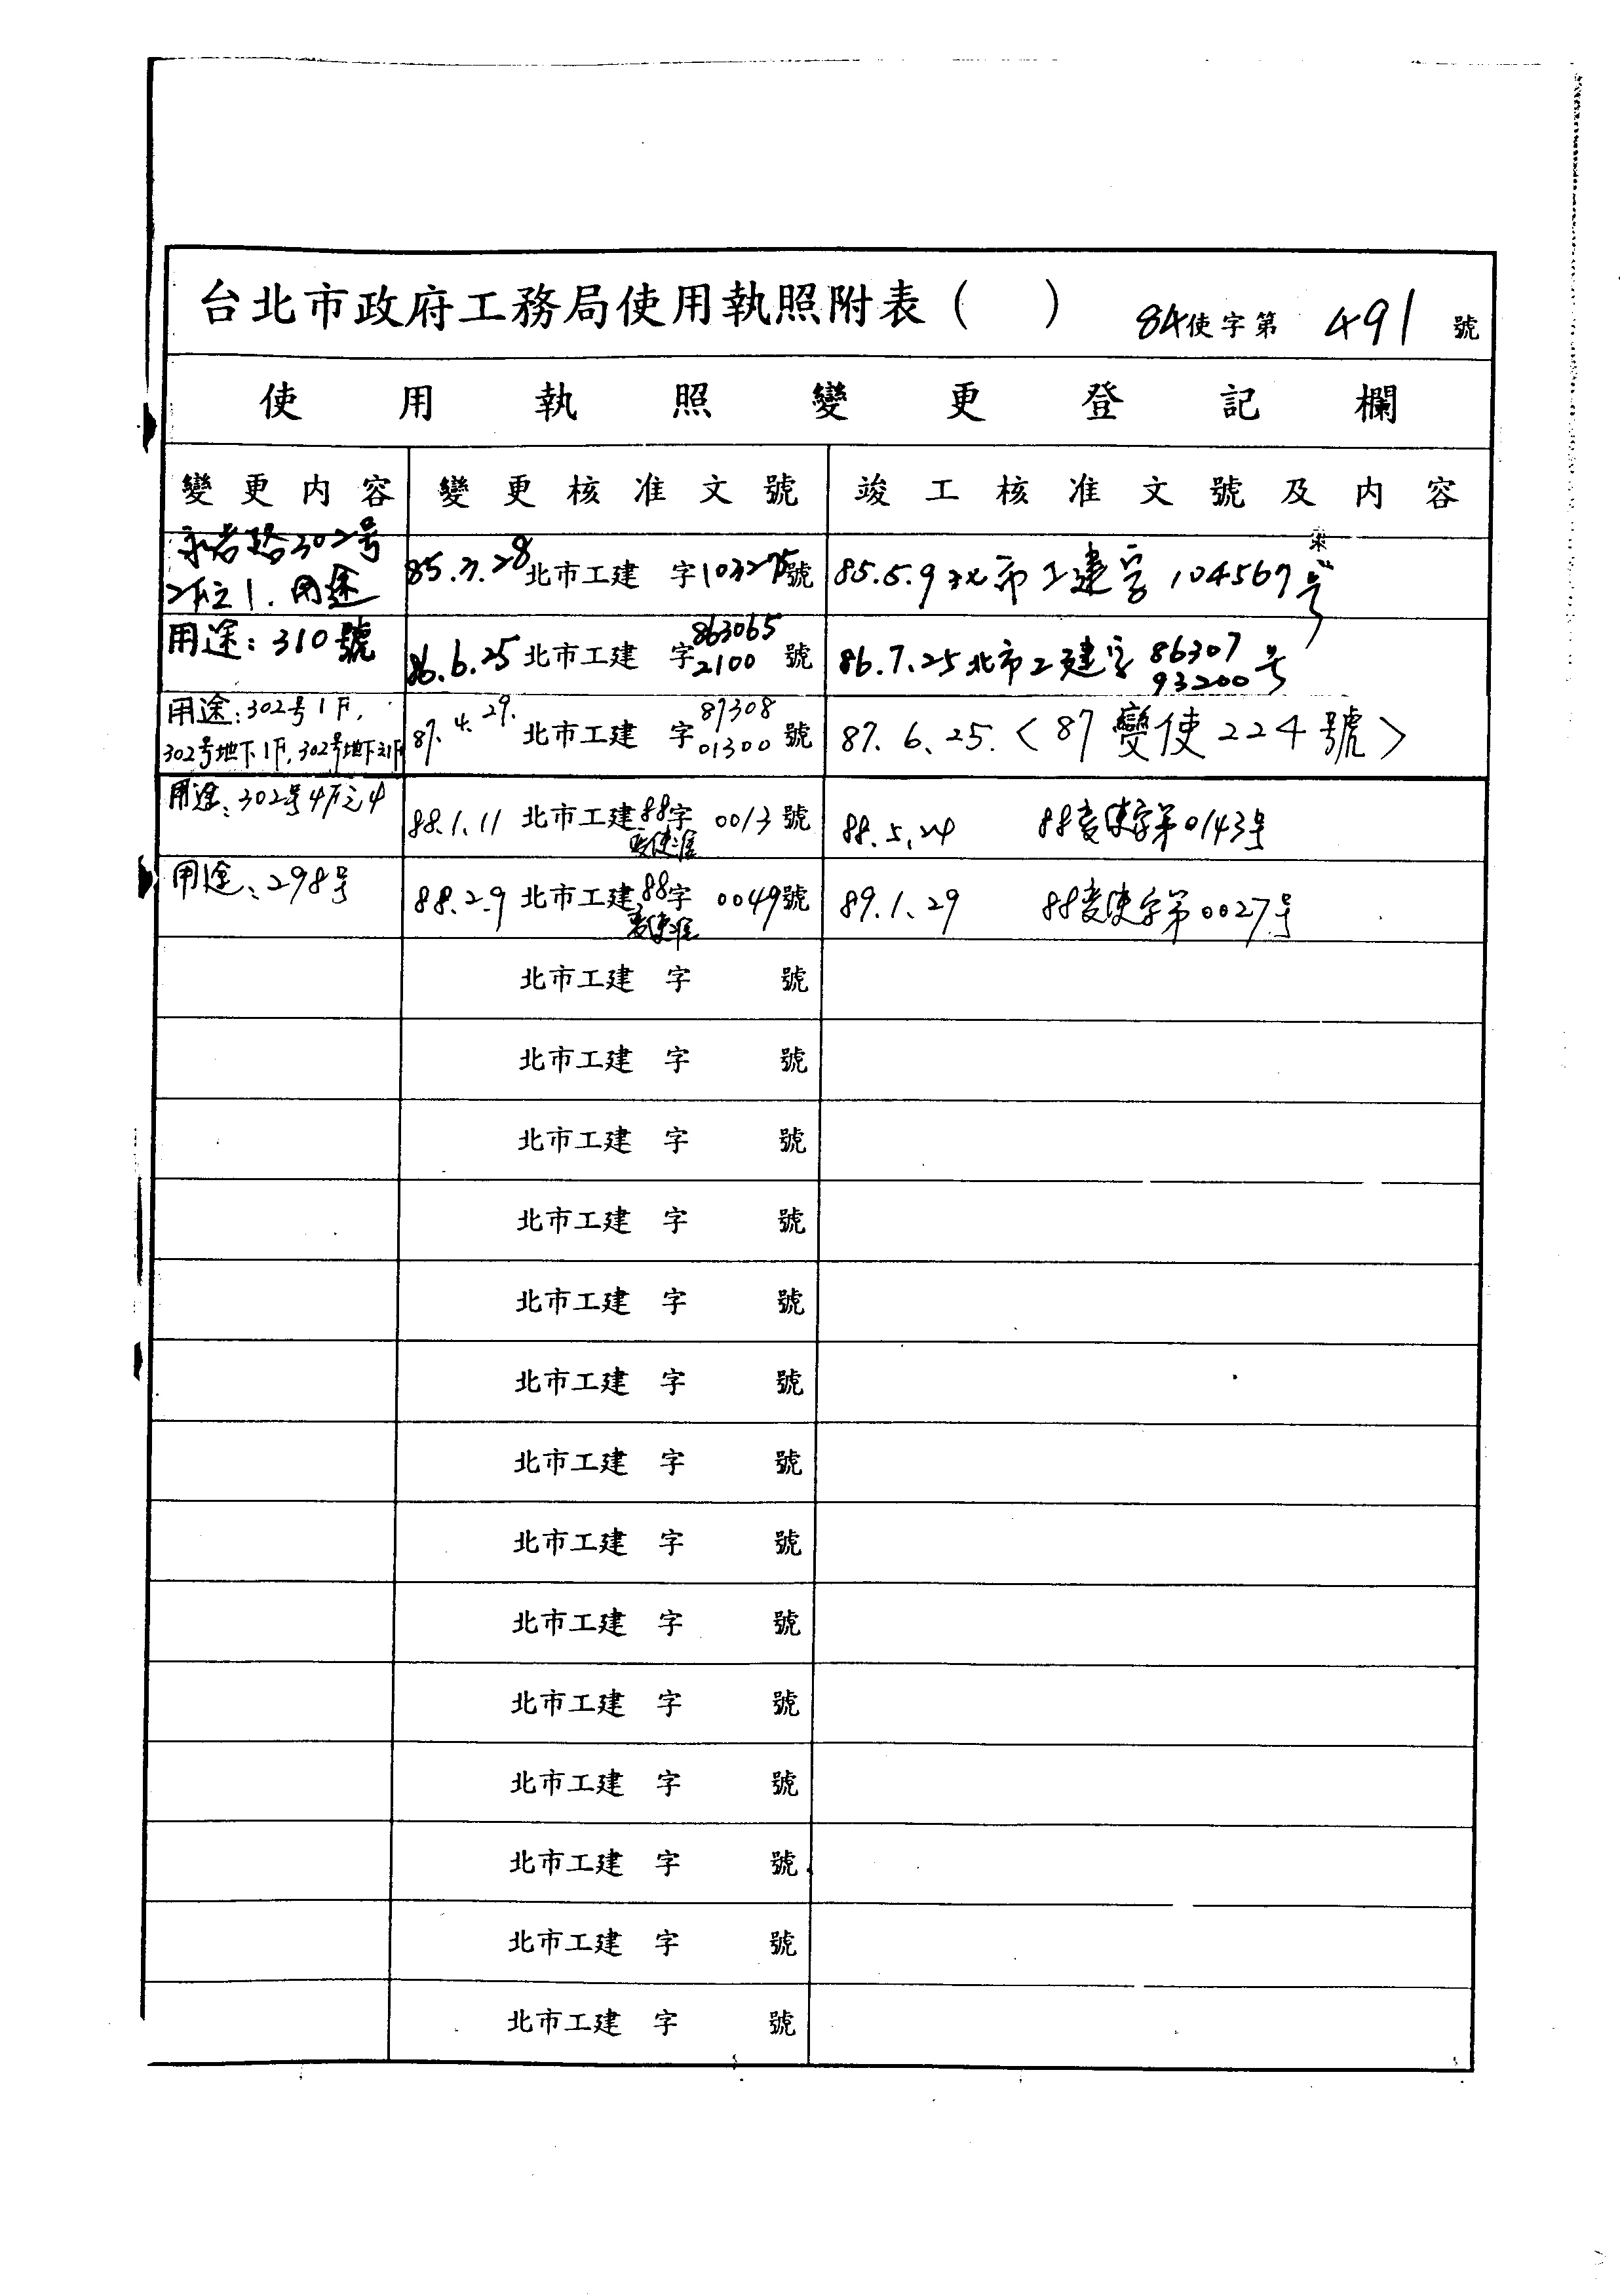 台北市政府工務局使用執照附表（　）　84使字第　491　號
使用執照變更登記欄
變更内容　變更核准文號　竣工核准文號及内容
路302号
2下之1.用途　北市工建　字　號　85.5.9北市工建字104567号
用途：310號　86.6.25北市工建　字8630652100　號　86.7.25北市工建字8630793200号
用途：302号1下，
302号地下1下，302号地下之1下　87.4.29.　北市工建　字8730801300　號　87.6.25.〈87變使224號〉
用途：302号4下之4　88.1.11　北市工建88字　0013號　88.5.24　88变使字第0143号
变使准
用途：298号　88.2.9　北市工建88字　0049號　89.1.29　88变使字第0027号
变使准
北市工建　字　號
北市工建　字　號
北市工建　字　號
北市工建　字　號
北市工建　字　號
北市工建　字　號
北市工建　字　號
北市工建　字　號
北市工建　字　號
北市工建　字　號
北市工建　字　號
北市工建　字　號
北市工建　字　號
北市工建　字　號